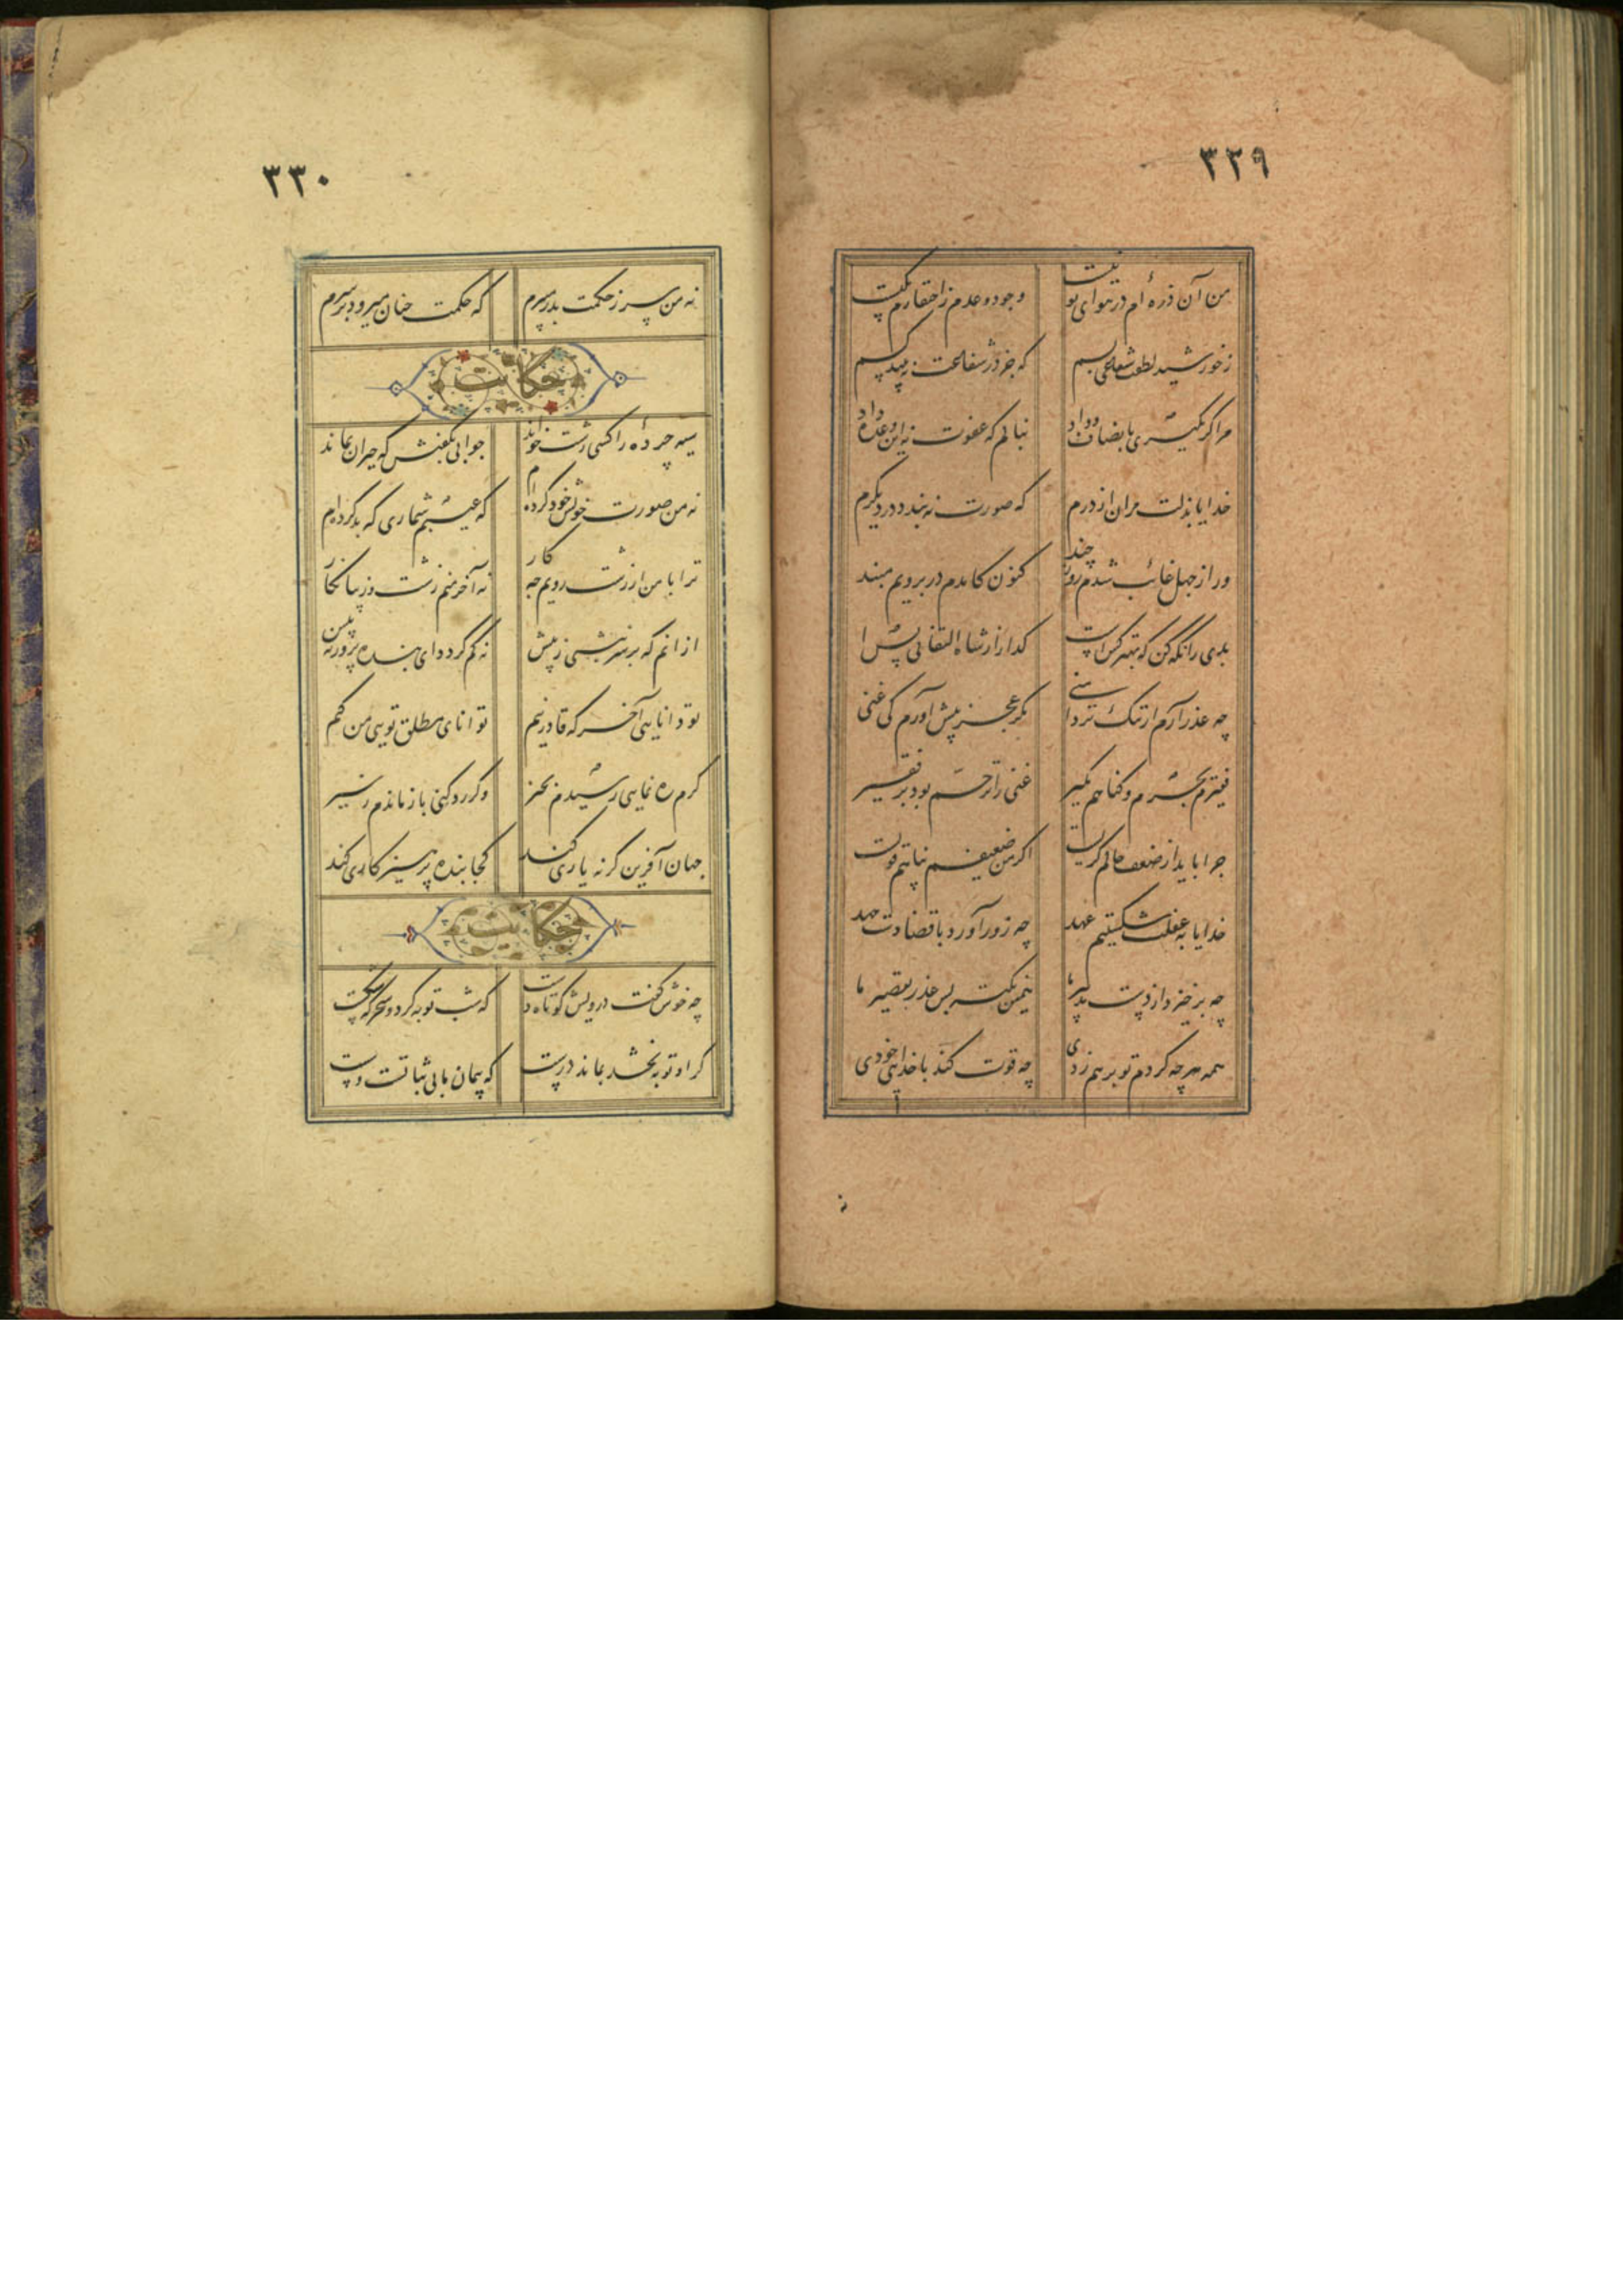 ۳۲۹
من آن ذره ام در هوای تو نیست
وجود و عدم ز احتقارم یکیست
ز خورشید لطفت شعاعی بسم
که جز در شعاعت نه بیند کسم
مرا گر بگیری بانصاف و داد
بنالم که عفوت نه این وعده داد
خدایا بذلت مران از درم
که صورت نه بندد در دیگرم
ور از جهل غائب شدم روز چند
کنون کامدم در برویم مبند
بدی را نگه کن که بهتر کس است
گدا را ز شاه التفاتی بس است
چه عذر آرم از ننگ تر دامنی
مگر عجز پیش آورم کی غنی
فقیرم بجرم و گناهم مگیر
غنی را ترحم بود بر فقیر
چرا باید از ضعف حالم گریست
اگر من ضعیفم پناهم قویست
خدایا به غفلت شکستیم عهد
چه زور آورد با قضا دست جهد
چه برخیزد از دست تدبیر ما
همین نکته بس عذر تقصیر ما
همه هر چه کردم تو بر هم زدی
چه قوت کند با خدایی خودی
۳۳۰
نه من سر ز حکمت بدر میبرم
که حکمت چنان میرود بر سرم
حکایت
سیه چرده را کسی زشت خواند
جوابی بگفتش که حیران بماند
نه من صورت خویش خود کرده ام
که عیبم شماری که بد کرده ام
ترا با من ار زشت رویم چه کار
نه آخر منم زشت و زیبا نگار
از انم که بر سر نبشتی ز پیش
نه کم گردد ای بنده پرور نه بیش
تو دانایی آخر که قادر نیم
توانای مطلق تویی من کیم
گرم ره نمایی رسیدم بخیر
وگر رد کنی باز ماندم ز سیر
جهان آفرین گر نه یاری کند
کجا بنده پرهیزکاری کند
حکایت
چه خوش گفت درویش کوتاه دست
که شب توبه کرد و سحرگه شکست
گر او توبه بخشد بماند درست
که پیمان ما بی ثباتست و سست